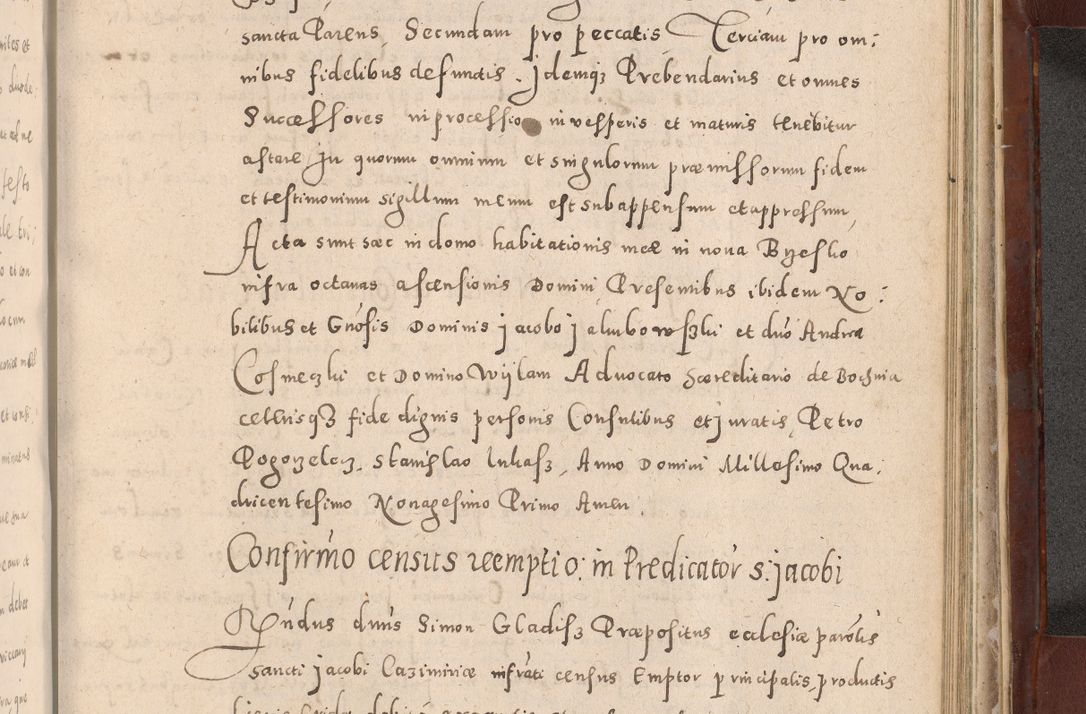 sancta Parens, Secundam pro peccatis Terciam pro om:
nibus fidelibus defunctis. Idemqz Prebendarius et omnes
Successores in processio in vesperis et maturis tenebitur
astare, In quorum omnium et singulorum præmissorum fidem
et testimonium sigillum meum est subappensum et appressum,
Acta sunt hæc in domo habitationis meæ in nova Brzesko
infra octavas ascensionis Domini, Presentibus ibidem No:
bilibus et Gnosis Dominis Jacobo Jakubowszki et dno Andrea
Cosmeczki et Domino Wylam Advocato Hæreditario de Bochnia
cettrisqz fide dignis personis Consulibus et Juratis, Petro
Pogorzelecz, Stanislao lukasz, Anno Domini Millesimo Qua:
dricentesimo Nonagesimo Primo Amen.
Confirmo census reemptio: in Predicator s: jacobi
Rndus dnus Simon Gladisz Præpositus ecclesiæ parolis
sancti jacobi Cazimiriæ infrati census Emptor principalis, productis